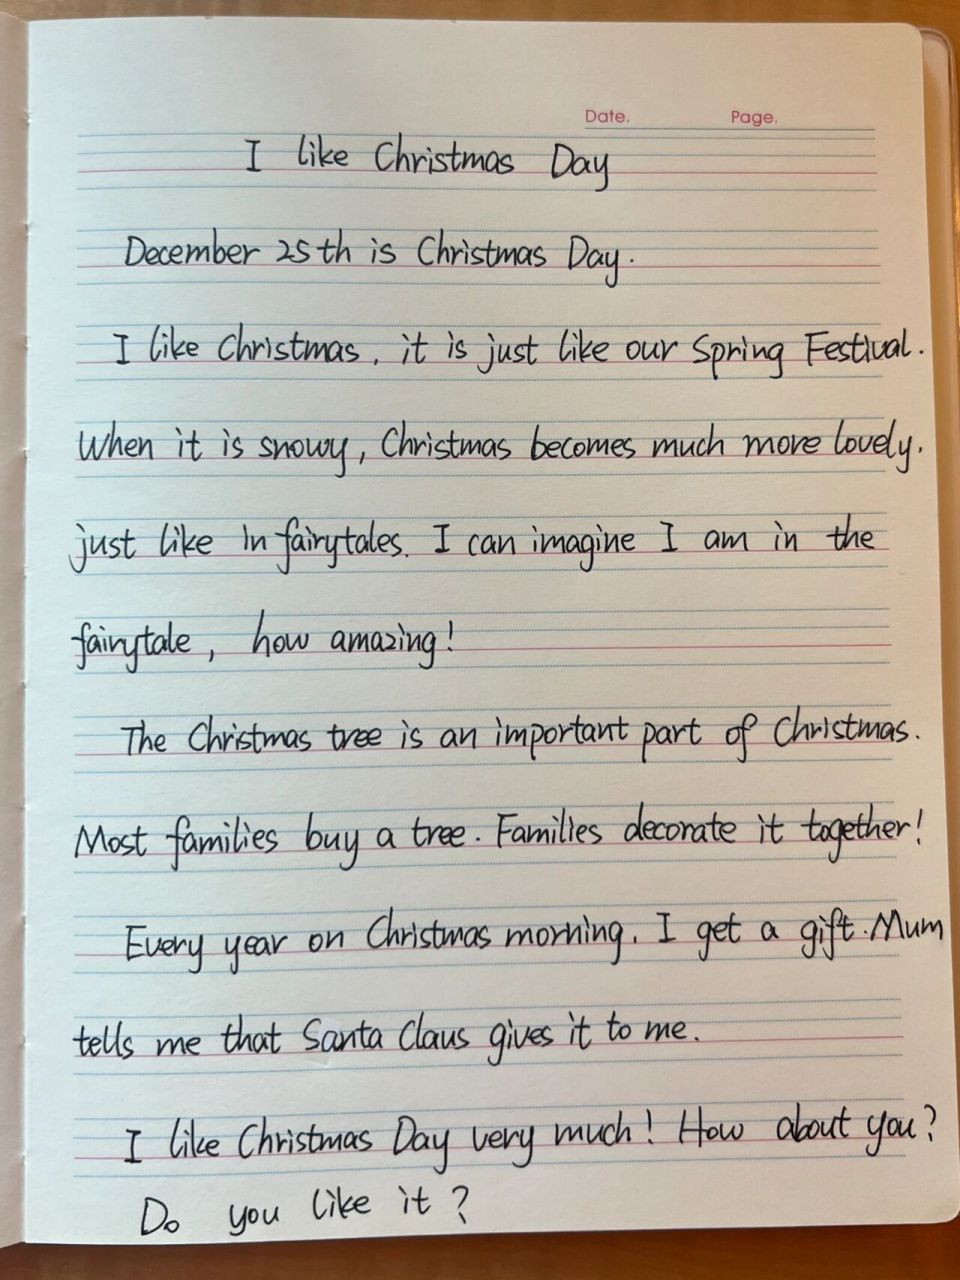 Date. Page.
I like Christmas Day
December 25th is Christmas Day.
I like Christmas, it is just like our Spring Festival.
When it is snowy, Christmas becomes much more lovely.
just like in fairytales. I can imagine I am in the
fairytale, how amazing!
The Christmas tree is an important part of Christmas.
Most families buy a tree. Families decorate it together!
Every year on Christmas morning, I get a gift. Mum
tells me that Santa Claus gives it to me.
I like Christmas Day very much! How about you?
Do you like it?